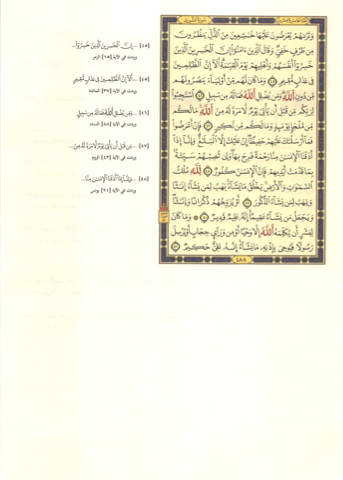 وَتَرَىٰهُمْ يُعْرَضُونَ عَلَيْهَا خَٰشِعِينَ مِنَ ٱلذُّلِّ يَنظُرُونَ
مِن طَرْفٍ خَفِيٍّ وَقَالَ ٱلَّذِينَ ءَامَنُوٓا۟ إِنَّ ٱلْخَٰسِرِينَ ٱلَّذِينَ
خَسِرُوٓا۟ أَنفُسَهُمْ وَأَهْلِيهِمْ يَوْمَ ٱلْقِيَٰمَةِ أَلَآ إِنَّ ٱلظَّٰلِمِينَ
فِى عَذَابٍ مُّقِيمٍ ٤٥ وَمَا كَانَ لَهُم مِّنْ أَوْلِيَآءَ يَنصُرُونَهُم
مِّن دُونِ ٱللَّهِ وَمَن يُضْلِلِ ٱللَّهُ فَمَا لَهُۥ مِن سَبِيلٍ ٤٦ ٱسْتَجِيبُوا۟
لِرَبِّكُم مِّن قَبْلِ أَن يَأْتِىَ يَوْمٌ لَّا مَرَدَّ لَهُۥ مِنَ ٱللَّهِ مَا لَكُم
مِّن مَّلْجَإٍ يَوْمَئِذٍ وَمَا لَكُم مِّن نَّكِيرٍ ٤٧ فَإِنْ أَعْرَضُوا۟
فَمَآ أَرْسَلْنَٰكَ عَلَيْهِمْ حَفِيظًا إِنْ عَلَيْكَ إِلَّا ٱلْبَلَٰغُ وَإِنَّآ إِذَآ
أَذَقْنَا ٱلْإِنسَٰنَ مِنَّا رَحْمَةً فَرِحَ بِهَا وَإِن تُصِبْهُمْ سَيِّئَةٌۢ
بِمَا قَدَّمَتْ أَيْدِيهِمْ فَإِنَّ ٱلْإِنسَٰنَ كَفُورٌ ٤٨ لِّلَّهِ مُلْكُ
ٱلسَّمَٰوَٰتِ وَٱلْأَرْضِ يَخْلُقُ مَا يَشَآءُ يَهَبُ لِمَن يَشَآءُ إِنَٰثًا
وَيَهَبُ لِمَن يَشَآءُ ٱلذُّكُورَ ٤٩ أَوْ يُزَوِّجُهُمْ ذُكْرَانًا وَإِنَٰثًا
وَيَجْعَلُ مَن يَشَآءُ عَقِيمًا إِنَّهُۥ عَلِيمٌ قَدِيرٌ ٥٠ وَمَا كَانَ
لِبَشَرٍ أَن يُكَلِّمَهُ ٱللَّهُ إِلَّا وَحْيًا أَوْ مِن وَرَآئِ حِجَابٍ أَوْ يُرْسِلَ
رَسُولًا فَيُوحِىَ بِإِذْنِهِۦ مَا يَشَآءُ إِنَّهُۥ عَلِىٌّ حَكِيمٌ ٥١
٤٨٨
[٤٥] ...إِنَّ ٱلْخَٰسِرِينَ ٱلَّذِينَ خَسِرُوٓا۟...
وردت في الآية [١٥] الزمر
[٤٥] ...أَلَآ إِنَّ ٱلظَّٰلِمِينَ فِى عَذَابٍ مُّقِيمٍ
وردت في الآية [٣٧] المائدة
[٤٦] ...وَمَن يُضْلِلِ ٱللَّهُ فَمَا لَهُۥ مِن سَبِيلٍ
وردت في الآية [٨٨] النساء
[٤٧] ...مِّن قَبْلِ أَن يَأْتِىَ يَوْمٌ لَّا مَرَدَّ لَهُۥ مِنَ...
وردت في الآية [٤٣] الروم
[٤٨] ...وَإِنَّآ إِذَآ أَذَقْنَا ٱلْإِنسَٰنَ مِنَّا...
وردت في الآية [٢١] يونس